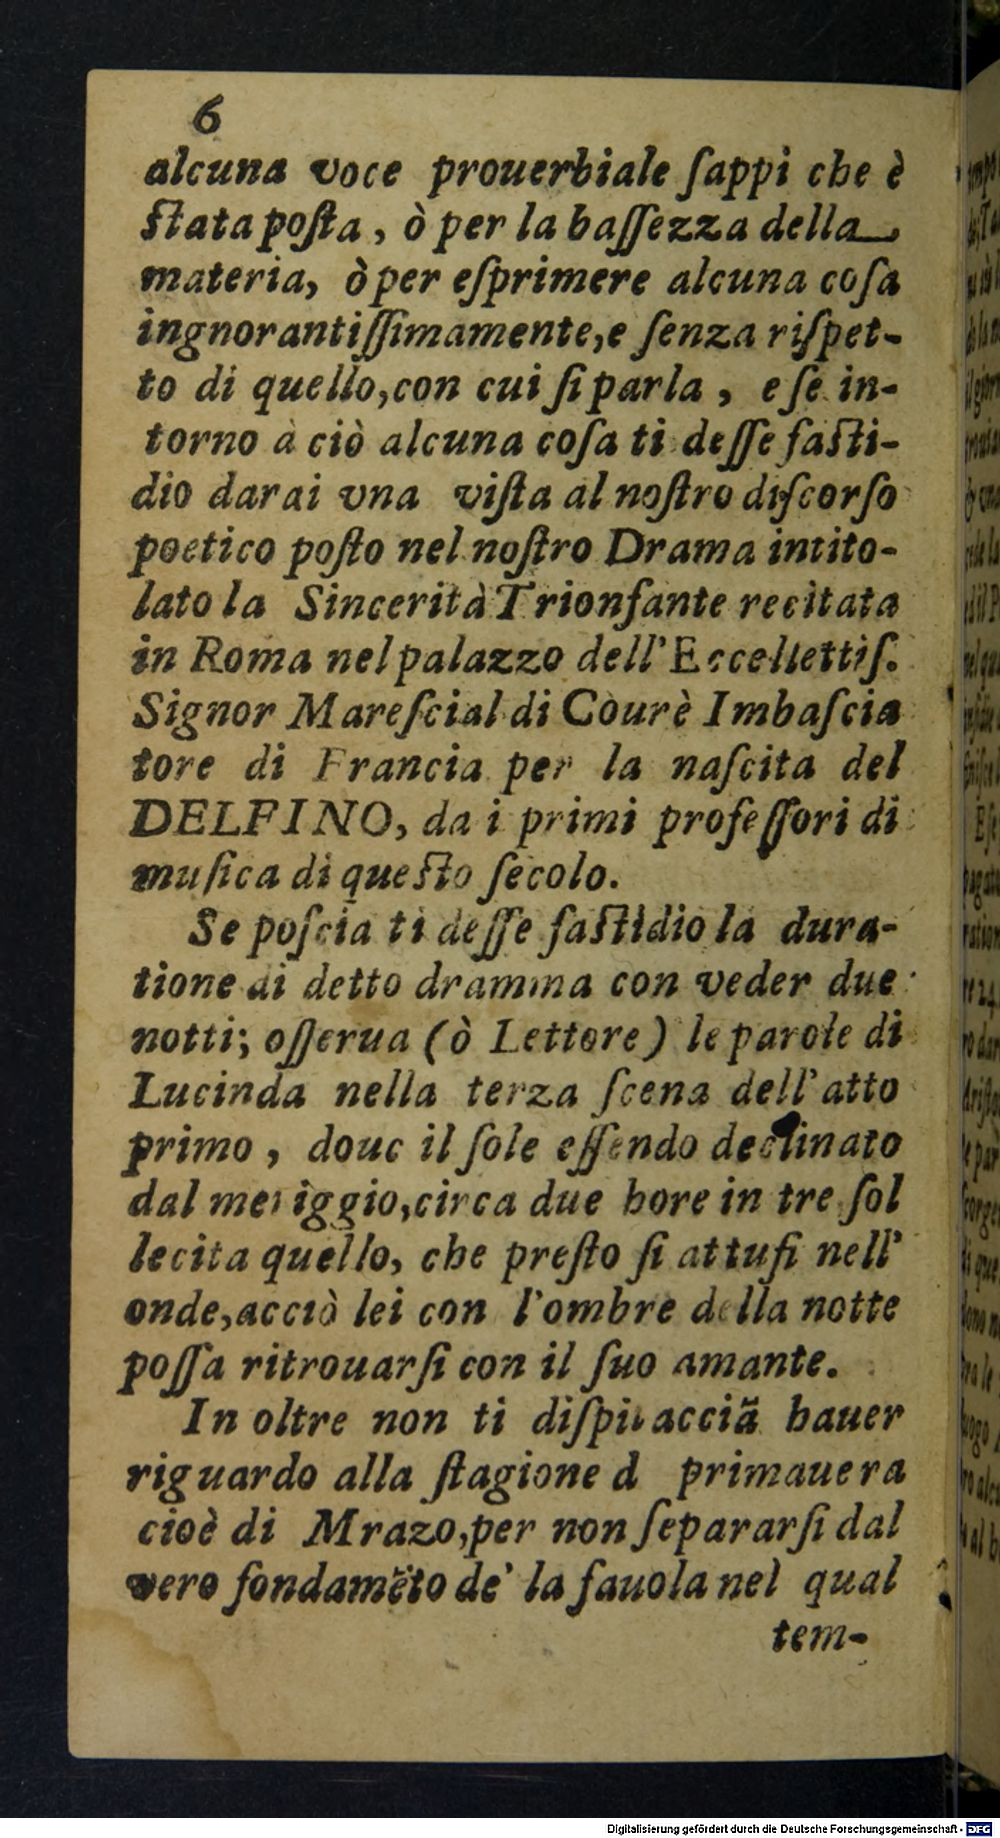 6
alcuna voce prouerbiale ſappi che è
ſtata poſta, ò per la baſſezza della
materia, ò per eſprimere alcuna coſa
ingnorantiſſimamente, e ſenza riſpet-
to di quello, con cui ſi parla, e ſe in-
torno à ciò alcuna coſa ti deſſe faſti-
dio darai vna viſta al noſtro diſcorſo
poetico poſto nel noſtro Drama intito-
lato la Sincerità Trionfante recitata
in Roma nel palazzo dell' Eccellettiſ.
Signor Mareſcial di Courè Imbaſcia
tore di Francia per la naſcita del
DELFINO, da i primi profeſſori di
muſica di queſto ſecolo.
Se poſcia ti deſſe faſtidio la dura-
tione di detto dramma con veder due
notti; oſſerua (ò Lettore) le parole di
Lucinda nella terza ſcena dell' atto
primo, doue il ſole eſſendo declinato
dal meriggio, circa due hore in tre ſol
lecita quello, che preſto ſi attufi nell'
onde, acciò lei con l'ombre della notte
poſſa ritrouarſi con il ſuo amante.
In oltre non ti diſpiacciā hauer
riguardo alla ſtagione d primauera
cioè di Mrazo, per non ſepararſi dal
vero fondamēto de' la fauola nel qual
tem-
Digitalisierung gefördert durch die Deutsche Forschungsgemeinschaft - DFG